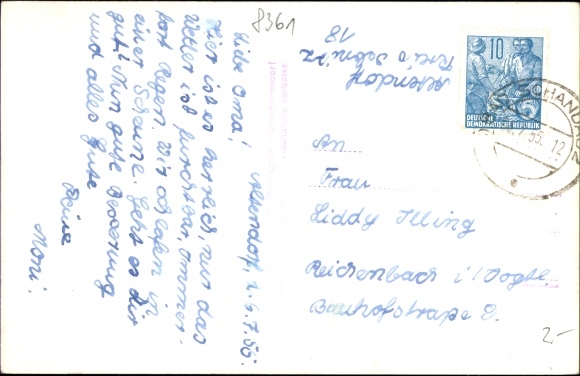 8361
Altendorf, d. 6.7.55.
Liebe Oma!
Hier ist es herrlich, nur das
Wetter ist furchtbar, immer-
fort Regen. Wir schlafen in
einer Scheune. Geht es dir
gut? Nun gute Besserung
und alles Gute
Deine
Moni.
Altendorf
Kreis Sebnitz
18
10
DEUTSCHE
DEMOKRATISCHE REPUBLIK
SCHANDAU
55. 12
An
Frau
Liddy Illing
Reichenbach i/Vogtl.
Bahnhofstraße 2.
2.-